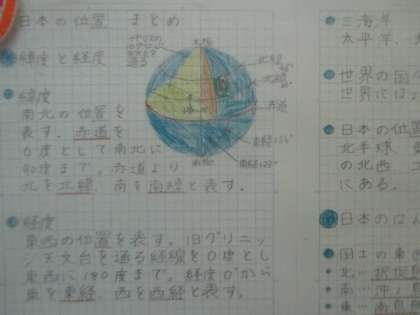 日本の位置 まとめ
緯度と経度
緯度
南北の位置を
表す。赤道を
0度として南北に
90度まで。赤道より
北を北緯、南を南緯と表す。
経度
東西の位置を表す。旧グリニッ
ジ天文台を通る経線を0度とし
東西に180度まで。経度0°から
東を東経、西を西経と表す。
通る
北極
赤道
南極
三海洋
太平洋、
世界の国
世界には
日本の位置
北半球、
の北西、
にある。
日本のはん
国土の東
北…択捉島
南…沖ノ鳥
東…南鳥島